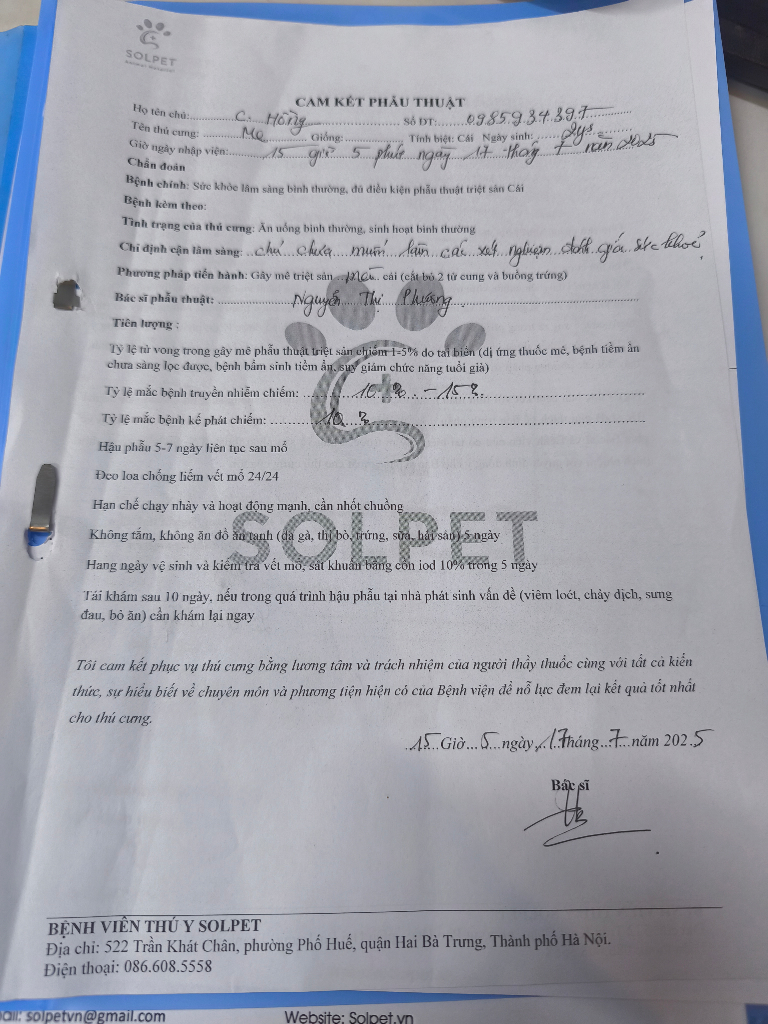 SOLPET
CAM KẾT PHẪU THUẬT
Họ tên chủ: C. Hồng Số ĐT: 0985934397
Tên thú cưng: Mẹ Giống: Tính biệt: Cái Ngày sinh: 2ys
Giờ ngày nhập viện: 15 giờ 5 phút ngày 17 tháng 7 năm 2025
Chẩn đoán
Bệnh chính: Sức khỏe lâm sàng bình thường, đủ điều kiện phẫu thuật triệt sản Cái
Bệnh kèm theo:
Tình trạng của thú cưng: Ăn uống bình thường, sinh hoạt bình thường
Chỉ định cận lâm sàng: chủ chưa muốn làm các xét nghiệm đánh giá sức khoẻ
Phương pháp tiến hành: Gây mê triệt sản mèo cái (cắt bỏ 2 tử cung và buồng trứng)
Bác sĩ phẫu thuật: Nguyễn Thị Phương
Tiên lượng :
Tỷ lệ tử vong trong gây mê phẫu thuật triệt sản chiếm 1-5% do tai biến (dị ứng thuốc mê, bệnh tiềm ẩn
chưa sàng lọc được, bệnh bẩm sinh tiềm ẩn, suy giảm chức năng tuổi già)
Tỷ lệ mắc bệnh truyền nhiễm chiếm: 10% - 15%
Tỷ lệ mắc bệnh kế phát chiếm: 10%
Hậu phẫu 5-7 ngày liên tục sau mổ
Đeo loa chống liếm vết mổ 24/24
Hạn chế chạy nhảy và hoạt động mạnh, cần nhốt chuồng
SOLPET
Không tắm, không ăn đồ ăn tanh (da gà, thị bò, trứng, sữa, hải sản) 5 ngày
Hang ngày vệ sinh và kiểm tra vết mổ, sát khuẩn bằng cồn iod 10% trong 5 ngày
Tái khám sau 10 ngày, nếu trong quá trình hậu phẫu tại nhà phát sinh vấn đề (viêm loét, chảy dịch, sưng
đau, bỏ ăn) cần khám lại ngay
Tôi cam kết phục vụ thú cưng bằng lương tâm và trách nhiệm của người thầy thuốc cùng với tất cả kiến
thức, sự hiểu biết về chuyên môn và phương tiện hiện có của Bệnh viện để nỗ lực đem lại kết quả tốt nhất
cho thú cưng.
15 Giờ 5 ngày 17 tháng 7 năm 2025
Bác sĩ
BỆNH VIỆN THÚ Y SOLPET
Địa chỉ: 522 Trần Khát Chân, phường Phố Huế, quận Hai Bà Trưng, Thành phố Hà Nội.
Điện thoại: 086.608.5558
ail: solpetvn@gmail.com Website: Solpet.vn